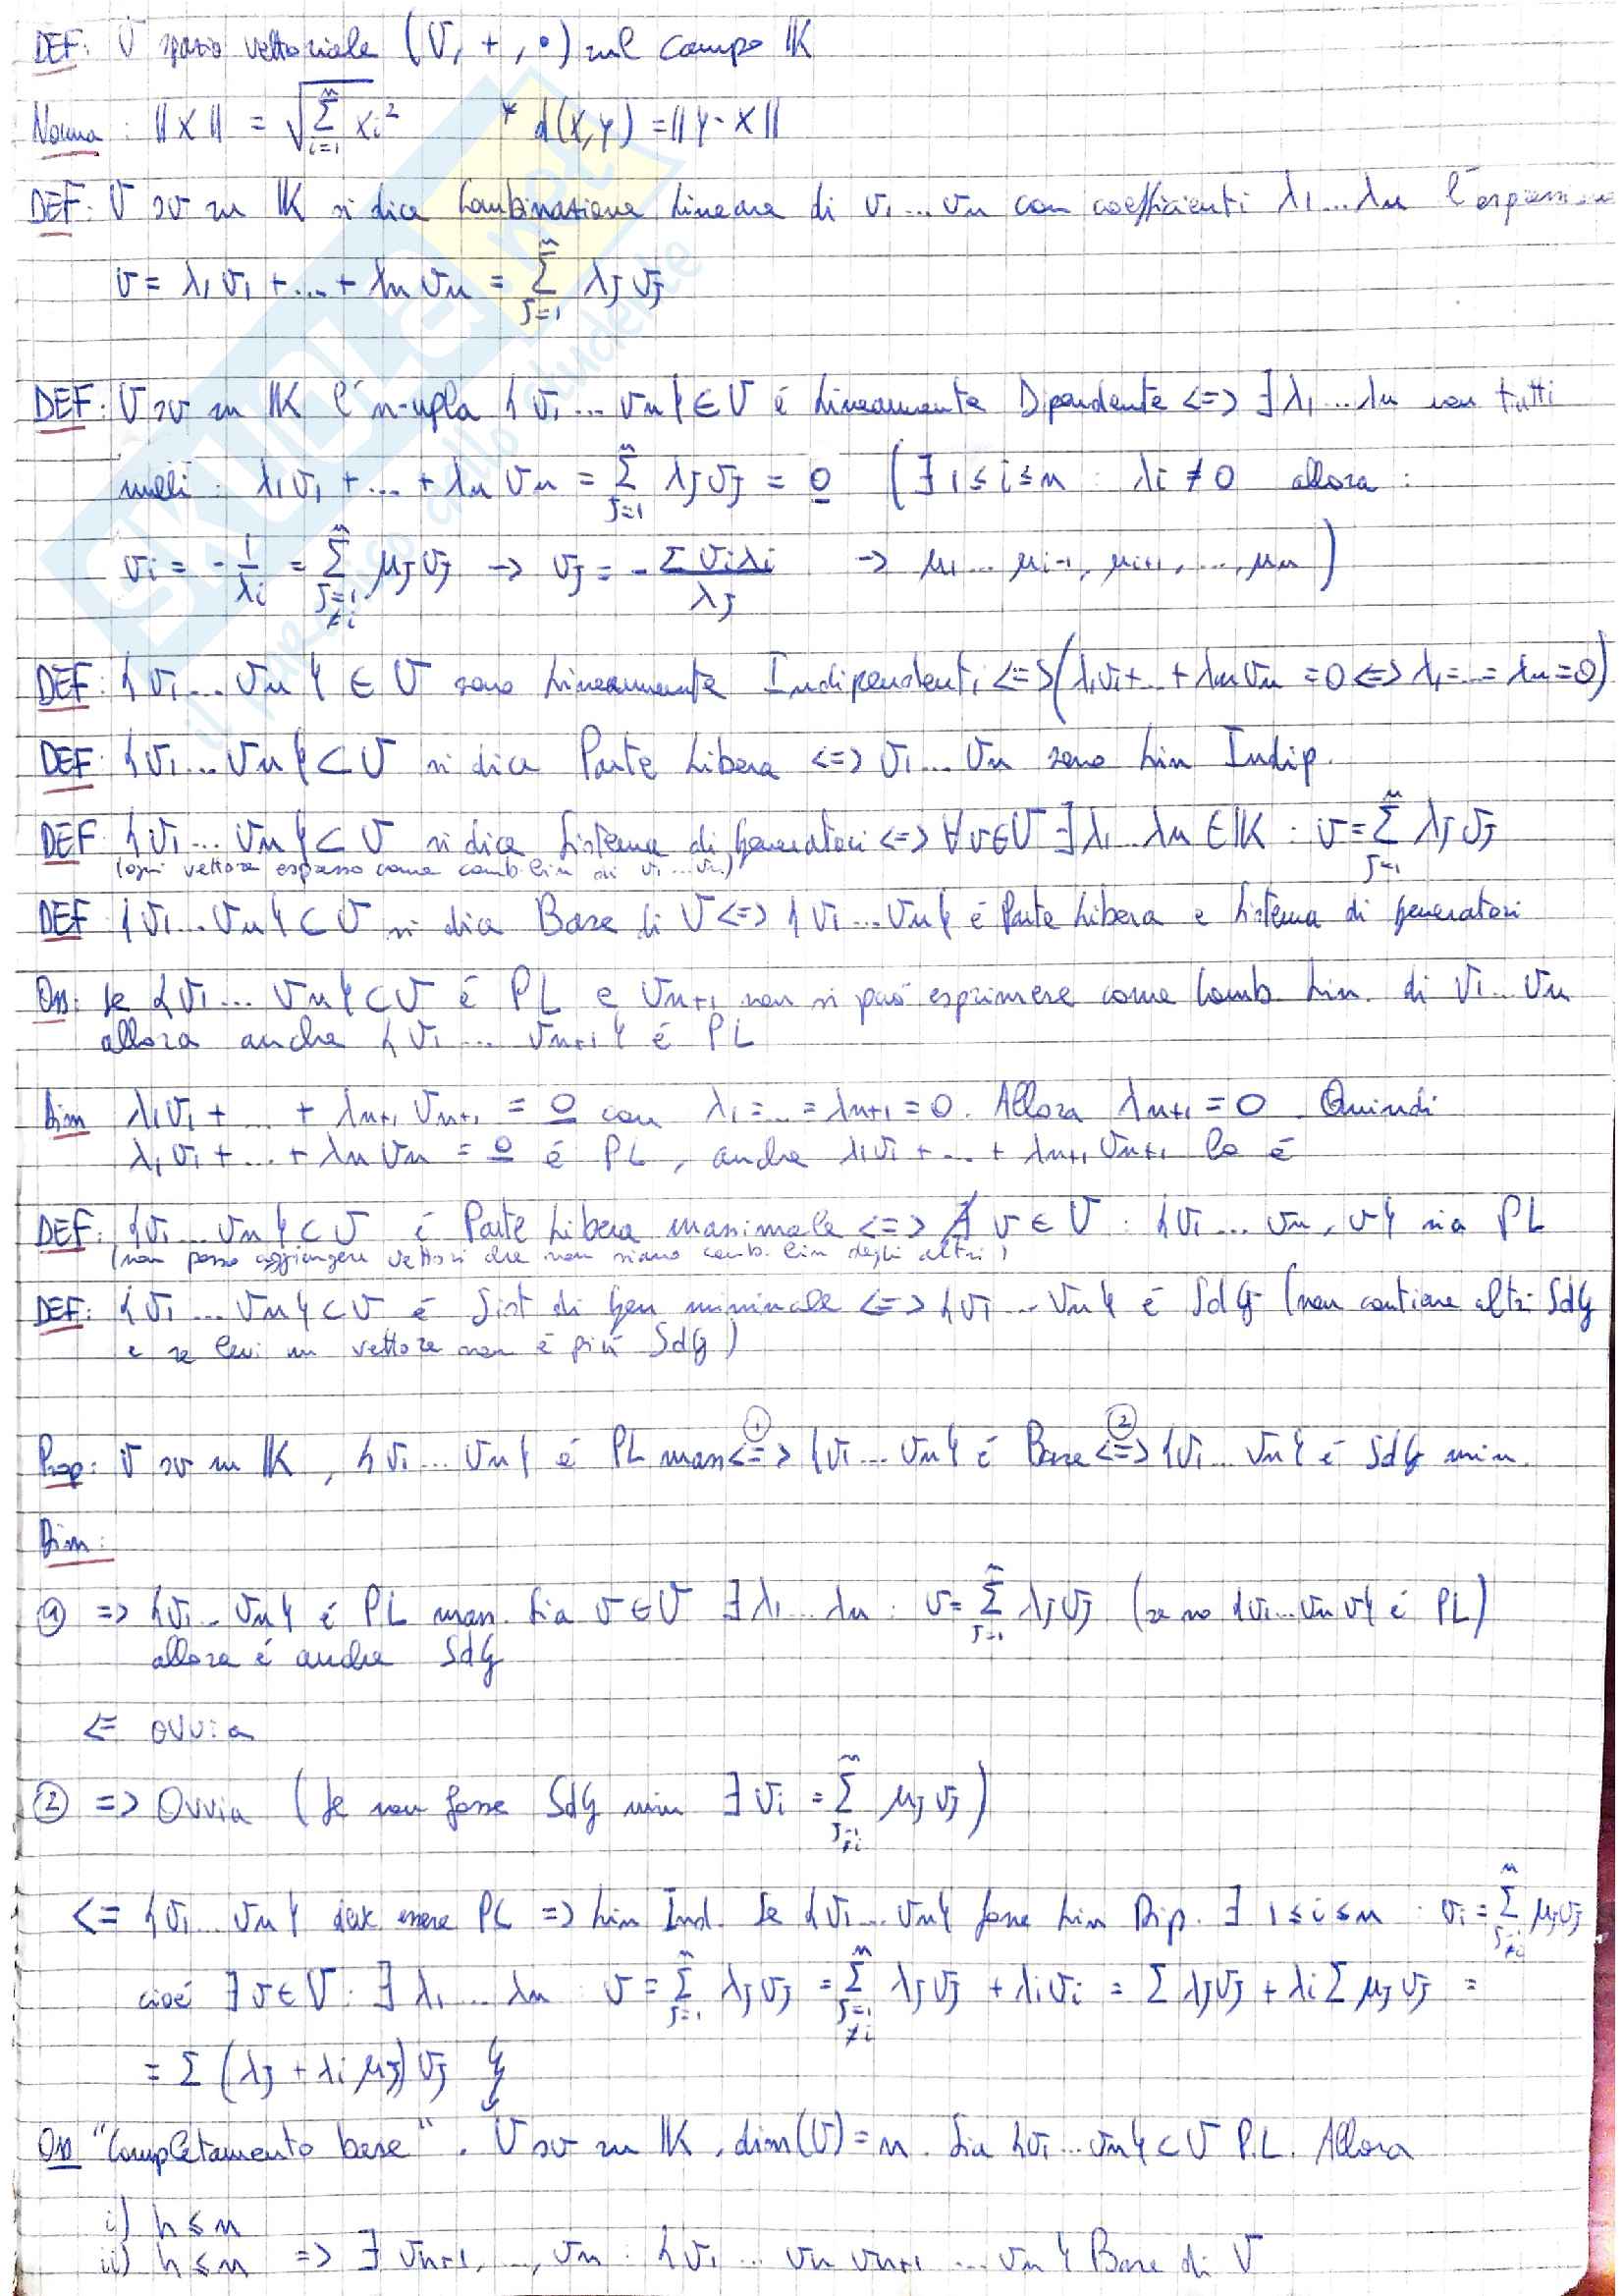 DEF: V spazio vettoriale (V, +, •) sul campo K
Norma: ||X|| = √(Σ_{i=1}^{n} xi²) * d(X,Y) = ||Y-X||
DEF: V sv su K si dica Combinazione Lineare di v1...vn con coefficienti λ1...λn l'espressione
v = λ1v1 + ... + λnvn = Σ_{j=1}^{n} λjvj
DEF: V sv su K l'n-upla {v1...vn} ∈ V é Linearmente Dipendente <=> ∃ λ1...λn non tutti
nulli: λ1v1 + ... + λnvn = Σ_{j=1}^{n} λjvj = 0 (∃ 1≤i≤n : λi ≠ 0 allora:
vi = -1/λi = Σ_{j=1, ≠i}^{n} μjvj -> vj = -Σviλi/λj -> μ1... μi-1, μi+1, ..., μn)
DEF: {v1...vn} ∈ V sono Linearmente Indipendenti <=> (λ1v1+...+λnvn = 0 <=> λ1=...=λn=0)
DEF: {v1...vn} ⊂ V si dica Parte Libera <=> v1...vn sono Lin Indip.
DEF: {v1...vn} ⊂ V si dica Sistema di generatori <=> ∀v∈V ∃ λ1...λn ∈ K : v = Σ_{j=1}^{n} λjvj
(ogni vettore espresso come comb. lin di v1...vn)
DEF {v1...vn} ⊂ V si dica Base di V <=> {v1...vn} é Parte Libera e Sistema di generatori
Oss: Se {v1... vn} ⊂ V é PL e vn+1 non si puó esprimere come Comb. Lin. di v1...vn
allora anche {v1 ... vn+1} é PL
Dim λ1v1 + ... + λn+1vn+1 = 0 con λ1=...=λn+1=0. Allora λn+1 = 0. Quindi
λ1v1 + ... + λnvn = 0 é PL, anche λ1v1 + ... + λn+1vn+1 lo é
DEF: {v1...vn} ⊂ V é Parte Libera massimale <=> ∄ v ∈ V : {v1...vn, v} sia PL
(non posso aggiungere vettori che non siano comb. lin degli altri)
DEF: {v1... vn} ⊂ V é Sist di gen minimale <=> {v1...vn} é SdG (non contiene altri SdG
e se levi un vettore non é piú SdG)
Prop: V sv su K, {v1...vn} é PL mass <=>① {v1...vn} é Base <=>② {v1...vn} é SdG min.
Dim:
① => {v1...vn} é PL mass. Sia v∈V ∃ λ1...λn : v = Σ_{j=1}^{n} λjvj (se no {v1...vn v} é PL)
allora é anche SdG
<= ovvia
② => Ovvia (Se non fosse SdG min ∃ vi = Σ_{j=1, ≠i}^{n} μjvj)
<= {v1...vn} deve essere PL => Lin Ind. Se {v1...vn} fosse Lin Dip. ∃ 1≤i≤n : vi = Σ_{j=1, ≠i}^{n} μjvj
cioé ∃ v∈V : ∃ λ1...λn : v = Σ_{j=1}^{n} λjvj = Σ_{j=1, ≠i}^{n} λjvj + λivi = Σ λjvj + λi Σ μjvj =
= Σ (λj + λiμj)vj ↯
Oss "Completamento base". V sv su K, dim(V)=n. Sia {v1...vh} ⊂ V P.L. Allora
i) h≤n
ii) h≤n => ∃ vh+1, ..., vn : {v1 ... vh vh+1 ... vn} Base di V
SKUOLA.net
il paradiso dello studente